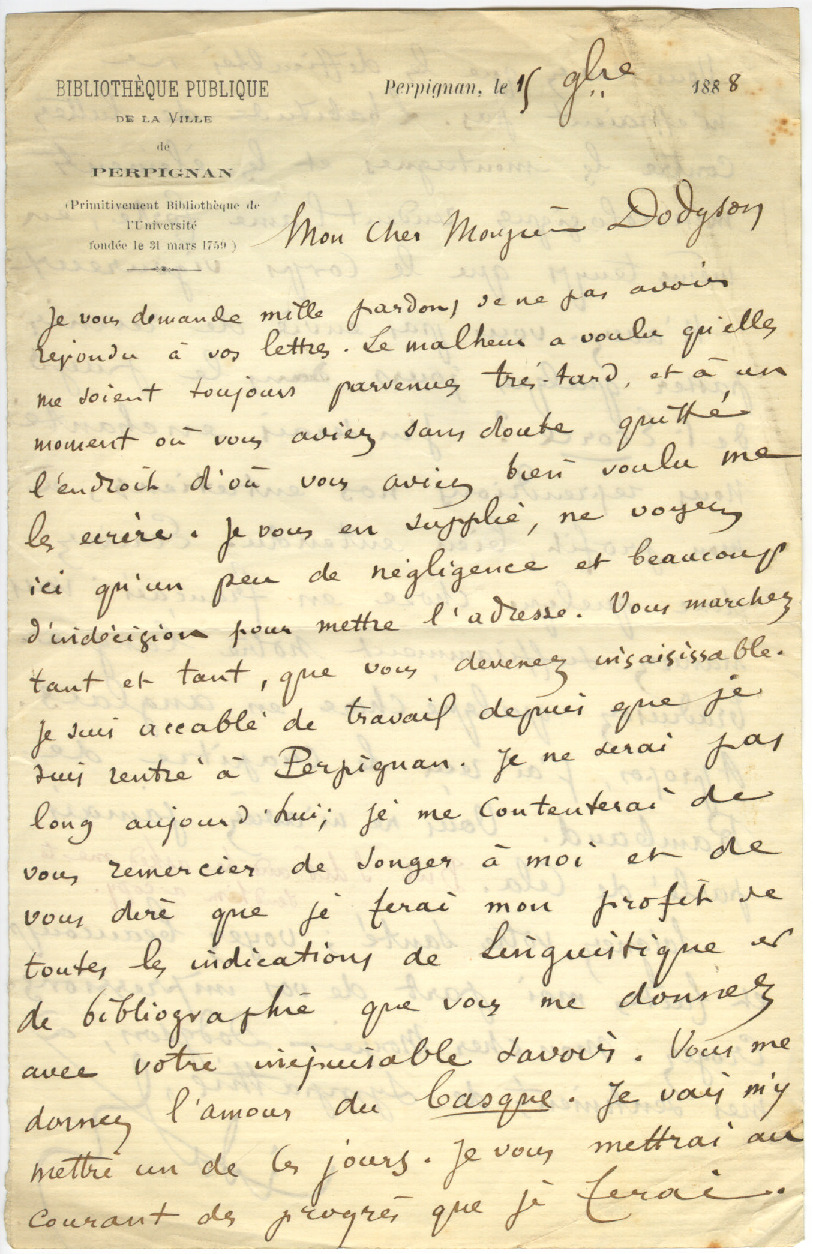 BIBLIOTHÈQUE PUBLIQUE
DE LA VILLE
de
PERPIGNAN
(Primitivement Bibliothèque de
l'Université
fondée le 31 mars 1759)
Perpignan, le 15 9bre 1888
Mon Cher Monsieur Dodgson
Je vous demande mille pardons de ne pas avoir
répondu à vos lettres. Le malheur a voulu qu'elles
me soient toujours parvenues très-tard, et à un
moment où vous aviez sans doute quitté
l'endroit d'où vous aviez bien voulu me
les ecrire. Je vous en supplie, ne voyez
ici qu'un peu de négligence et beaucoup
d'indécision pour mettre l'adresse. Vous marchez
tant et tant, que vous devenez insaisissable.
Je suis accablé de travail depuis que je
suis rentré à Perpignan. Je ne serai pas
long aujourd'hui; je me contenterai de
vous remercier de songer à moi et de
vous dire que je ferai mon profit de
toutes les indications de linguistique et
de bibliographie que vous me donnez
avec votre inépuisable savoir. Vous me
donnez l'amour du basque. Je vais m'y
mettre un de ces jours. Je vous mettrai au
courant des progrès que je ferai.